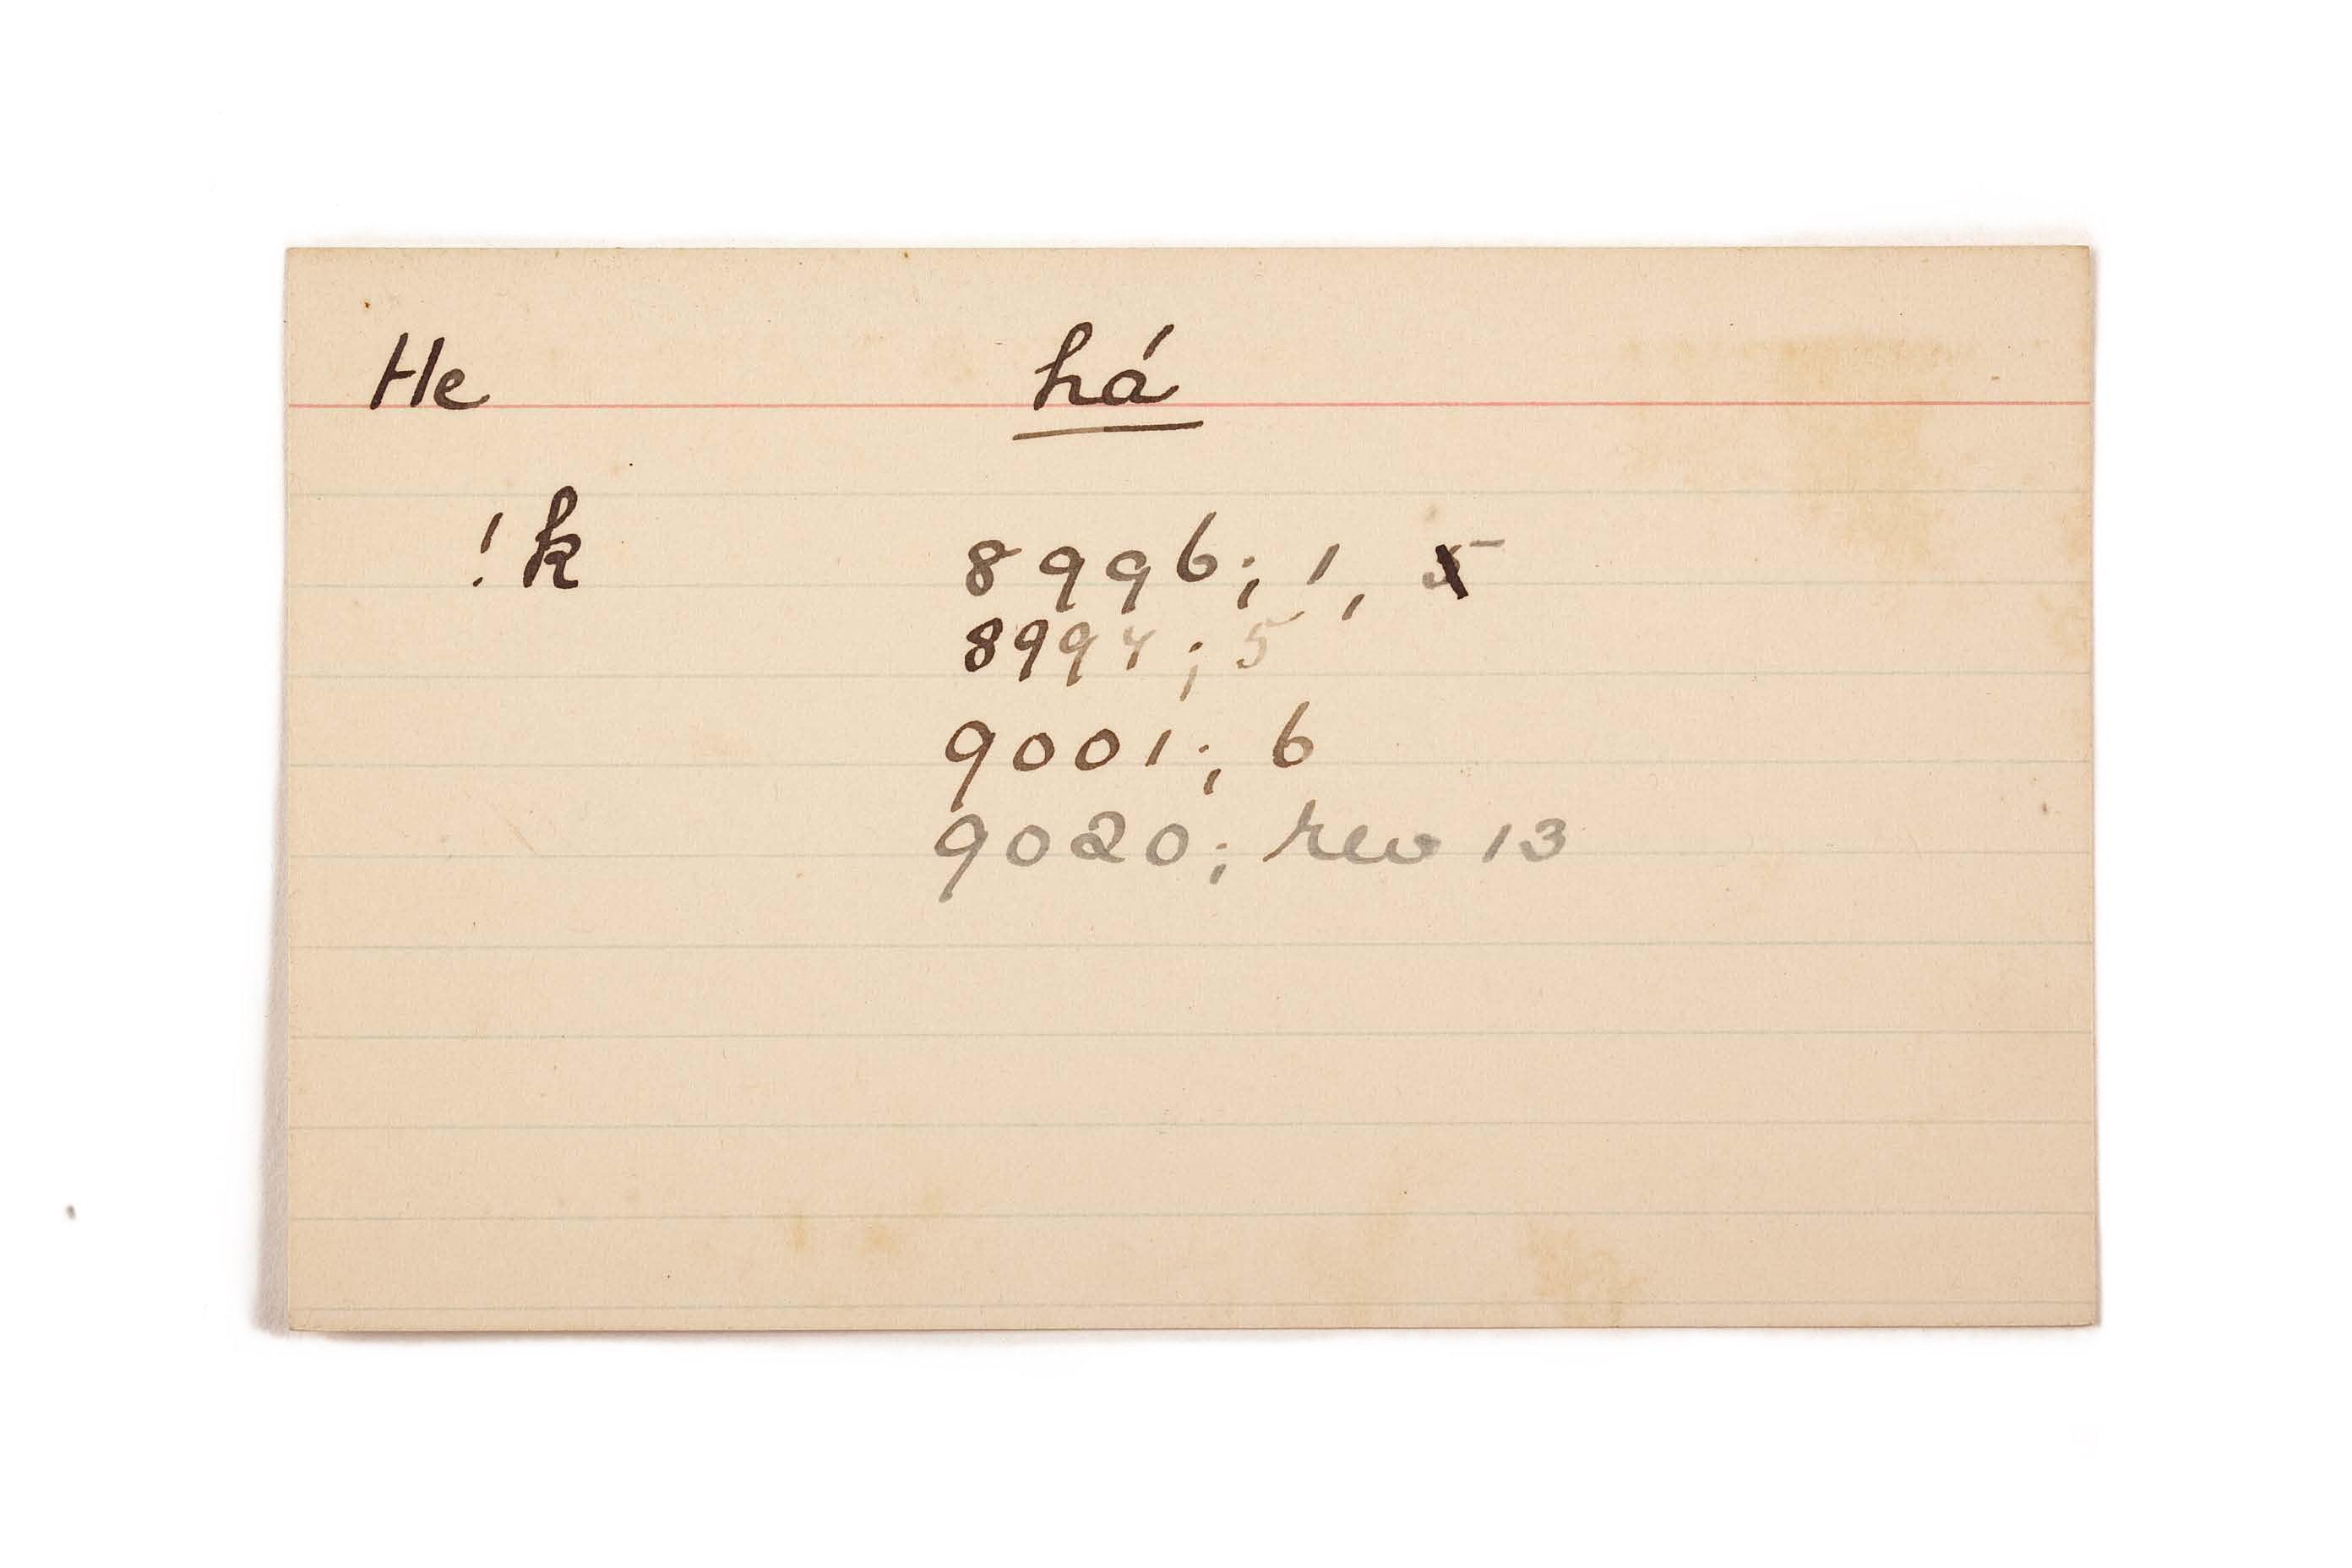 He há
!k 8996; 1,
8997; 5
9001; 6
9020; rev 13